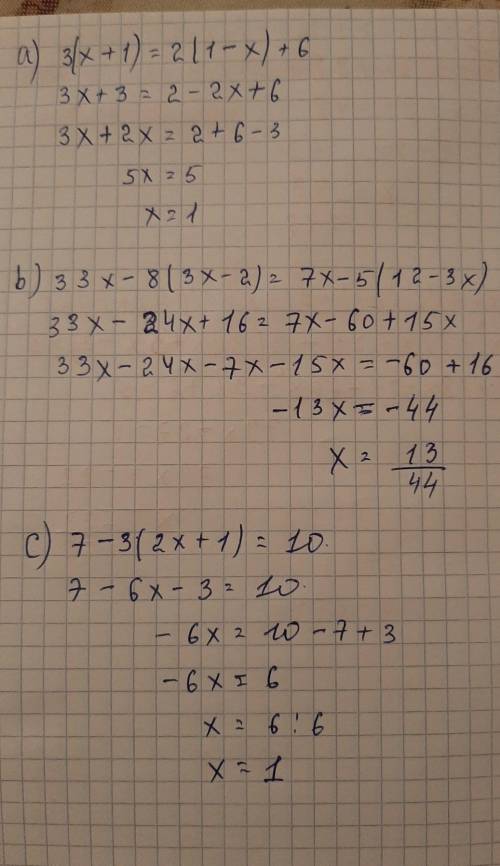 a) 3(x+1) = 2(1-x)+6
3x+3 = 2-2x+6
3x+2x = 2+6-3
5x = 5
x = 1
b) 33x-8(3x-2) = 7x-5(12-3x)
33x-24x+16 = 7x-60+15x
33x-24x-7x-15x = -60+16
-13x = -44
x = 13/44
c) 7-3(2x+1) = 10.
7-6x-3 = 10.
-6x = 10-7+3
-6x = 6
x = 6:6
x = 1